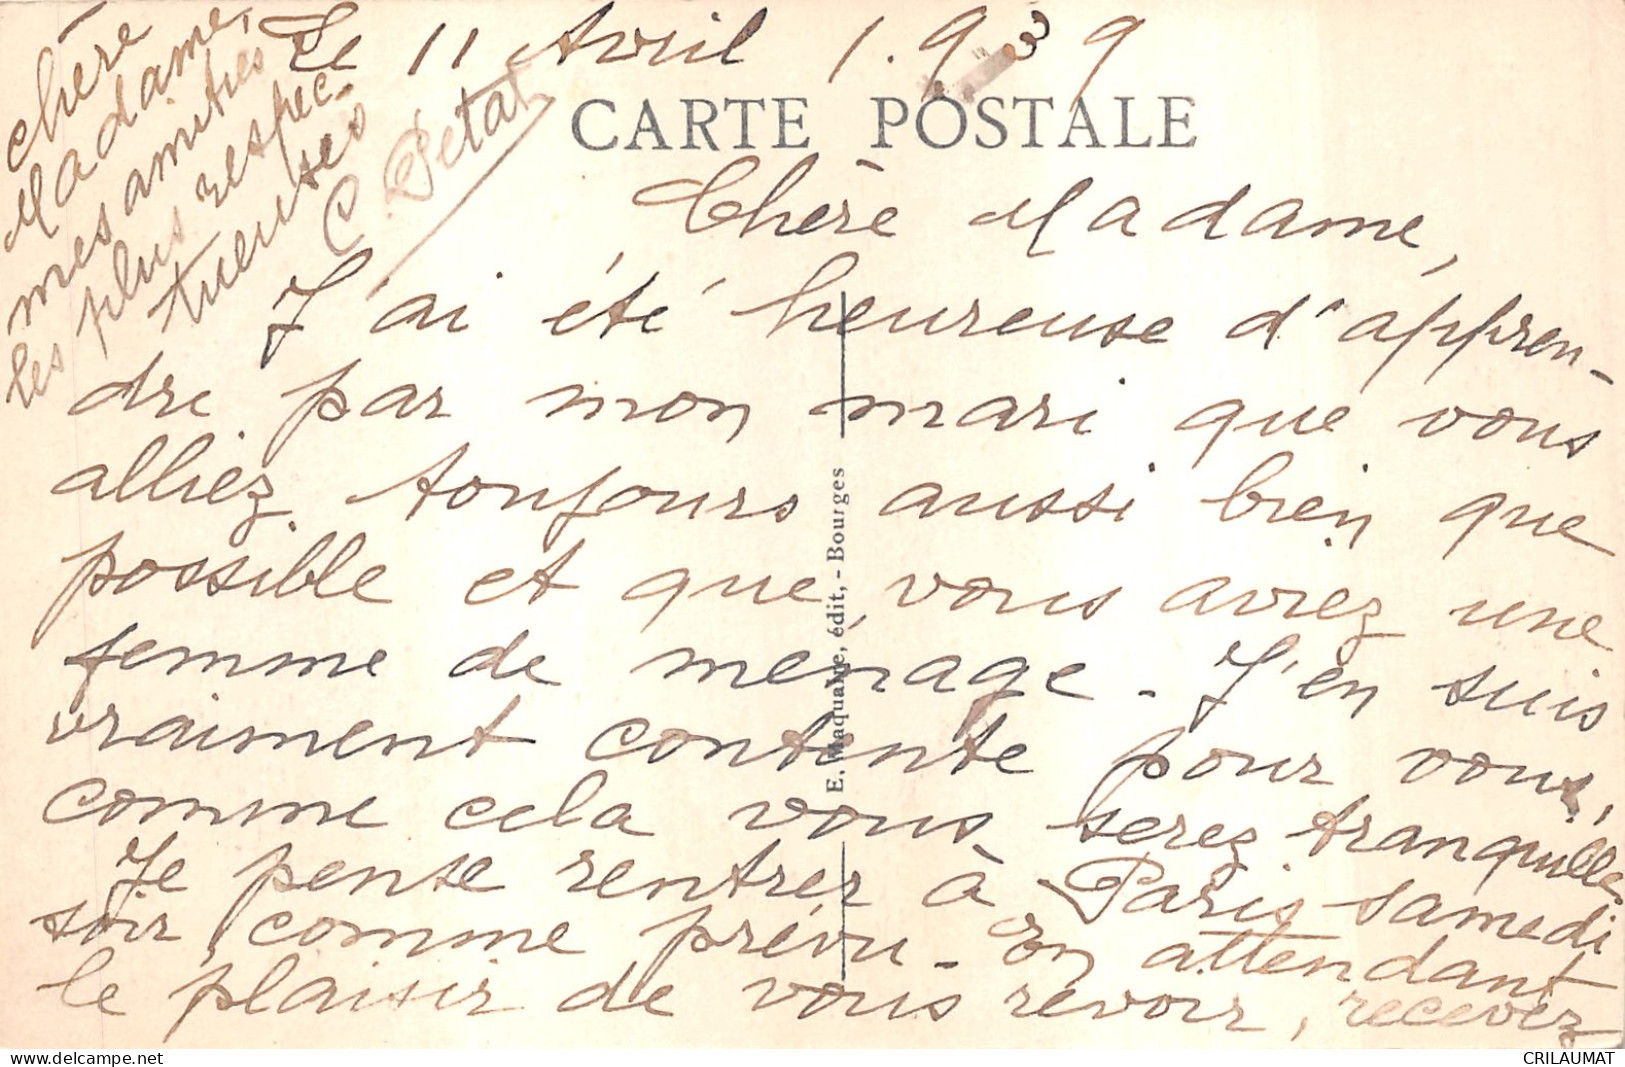 Le 11 Avril 1.939
CARTE POSTALE
Chère Madame,
J'ai été heureuse d'appren-
dre par mon mari que vous
alliez toujours aussi bien que
possible et que vous aviez une
femme de ménage. J'en suis
vraiment contente pour vous,
comme cela vous serez tranquille
Je pense rentrer à Paris samedi
soir, comme prévu - En attendant
le plaisir de vous revoir, recevez
chère
Madame,
mes amitiés
les plus respec-
tueuses
C. Petat
E. Maquabre, édit, - Bourges
CRILAUMAT